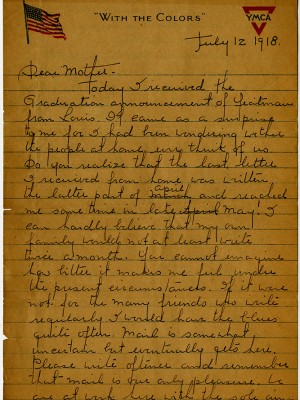 "WITH THE COLORS"
YMCA
July 12 1918.
Dear Mother.
Today I received the
Graduation announcement of
from Louis. It came as a surprise
to me for I had been wondering
the people at home ever think of us.
Do you realize that the last letter
I received from home was written
the latter part of April and reached
me some time in late May. I
can hardly believe that my own
family would not at least write
twice a month. You cannot imagine
how bitter it makes me feel under
the present circumstances. If it were
not for the many friends who write
regularly I would have the blues
quite often. Mail is somewhat
uncertain but eventually gets here.
Please write oftener and remember
that mail is our only pleasure. We
are at work here with the sole aim